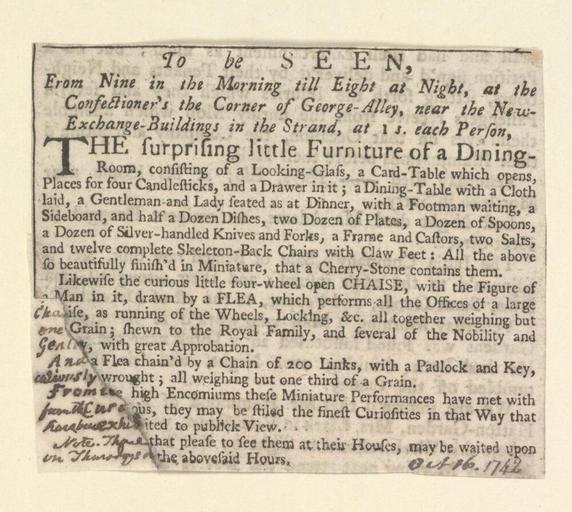 To be SEEN,
From Nine in the Morning till Eight at Night, at the
Confectioner's the Corner of George-Alley, near the New-
Exchange-Buildings in the Strand, at 1 s. each Perſon,
THE ſurpriſing little Furniture of a Dining-
Room, conſiſting of a Looking-Glaſs, a Card-Table which opens,
Places for four Candleſticks, and a Drawer in it; a Dining-Table with a Cloth
laid, a Gentleman and Lady ſeated as at Dinner, with a Footman waiting, a
Sideboard, and half a Dozen Diſhes, two Dozen of Plates, a Dozen of Spoons,
a Dozen of Silver-handled Knives and Forks, a Frame and Caſtors, two Salts,
and twelve complete Skeleton-Back Chairs with Claw Feet: All the above
ſo beautifully finiſh'd in Miniature, that a Cherry-Stone contains them.
Likewiſe the curious little four-wheel open CHAISE, with the Figure of
a Man in it, drawn by a FLEA, which performs all the Offices of a large
Chaiſe, as running of the Wheels, Locking, &c. all together weighing but
one Grain; ſhewn to the Royal Family, and ſeveral of the Nobility and
Gentry, with great Approbation.
And a Flea chain'd by a Chain of 200 Links, with a Padlock and Key,
curiouſly wrought; all weighing but one third of a Grain.
From the high Encomiums theſe Miniature Performances have met with
from the Curious, they may be ſtiled the fineſt Curioſities in that Way that
has been exhibited to publick View.
Note. Thoſe that pleaſe to ſee them at their Houſes, may be waited upon
on the aboveſaid Hours.
Oct 16. 1742